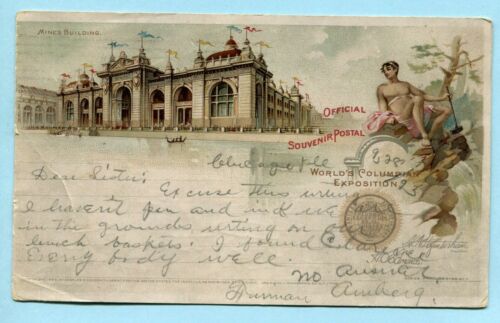 MINES BUILDING.
OFFICIAL
SOUVENIR POSTAL
WORLD'S COLUMBIAN
EXPOSITION
Chicago Ill 8/28
93
Dear Sister:
Excuse this writing
I haven't pen and ink we are
in the grounds, writing on our
lunch baskets. I found Clara
Every body well.
No Answer
Herman Amberg.